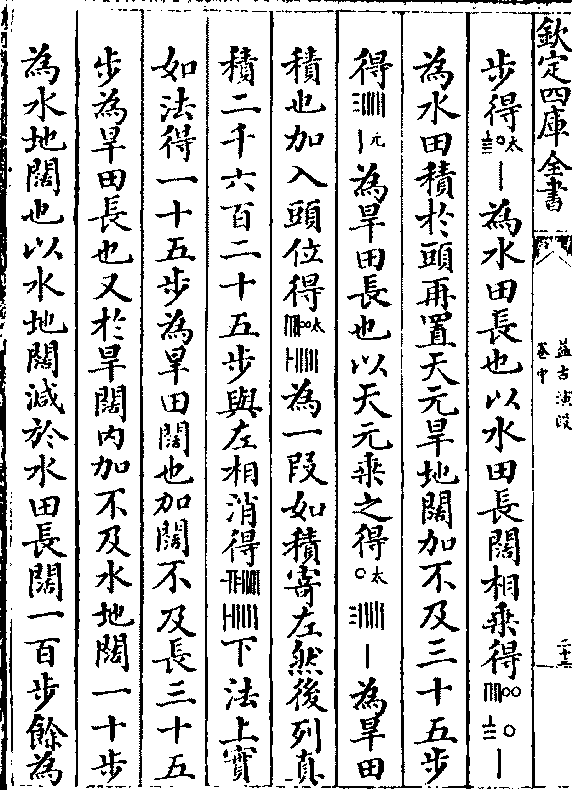 欽定四庫全書
益古演段
卷中
二十三
步得太為水田長也以水田長闊相乘得
為水田積於頭再置天元旱地闊加不及三十五步
得元為旱田長也以天元乘之得○太為旱田
積也加入頭位得太為一段如積寄左然後列真
積二千六百二十五步與左相消得下法上實
如法得一十五步為旱田闊也加闊不及長三十五
步為旱田長也又於旱闊内加不及水地闊一十步
為水地闊也以水地闊減於水田長闊一百步餘為